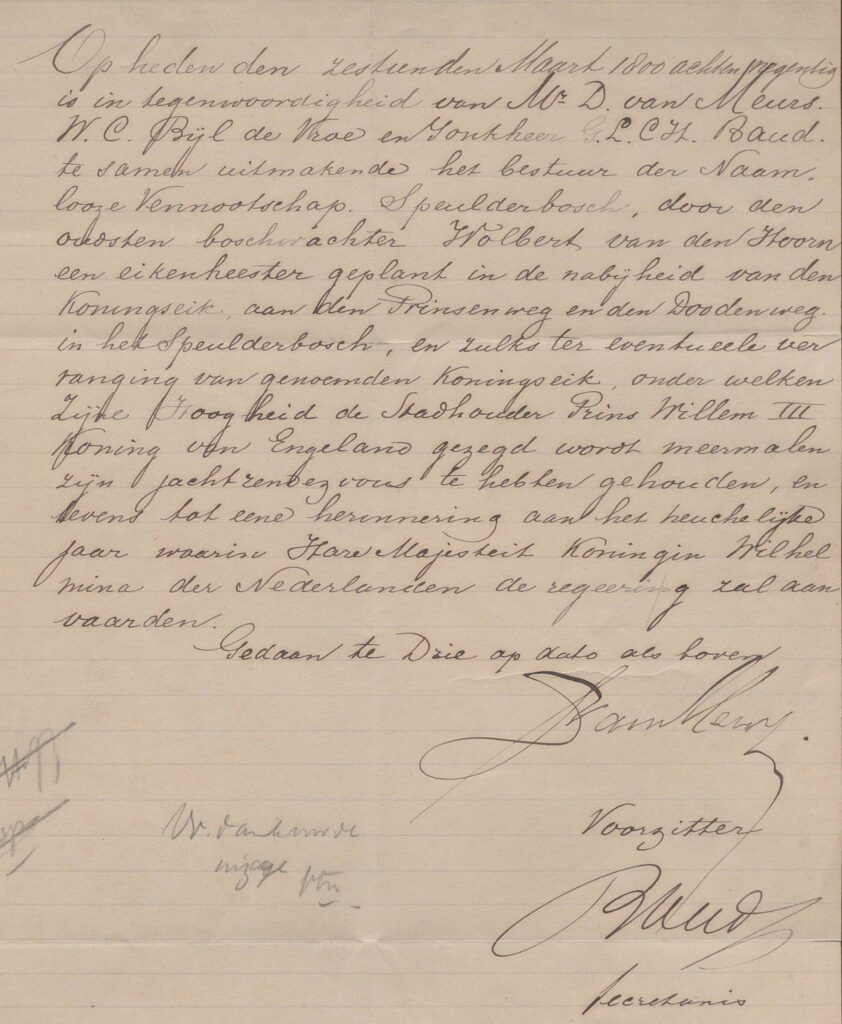 Op heden den zestienden Maart 1800 achten negentig
is in tegenwoordigheid van Mr. D. van Meurs.
W. C. Bijl de Vroe en Jonkheer G. L. C. H. Baud.
te samen uitmakende het bestuur der Naam,
looze Vennootschap. Speulderbosch, door den
oudsten boschwachter Wolbert van den Hoorn
een eikenheester geplant in de nabijheid van den
Koningseik, aan den Prinsenweg en den Doodenweg.
in het Speulderbosch, en zulks ter eventueele ver
vanging van genoemden Koningseik, onder welken
Zijne Hoogheid de Stadhouder Prins Willem III
Koning van Engeland gezegd wordt meermalen
zijn jachtrendezvous te hebben gehouden, en
tevens tot eene herinnering aan het heuchelijke
jaar waarin Hare Majesteit Koningin Wilhel
mina der Nederlanden de regeering zal aan
vaarden.
Gedaan te Drie op dato als boven
D van Meurs.
Voorzitter
Baud
secretaris